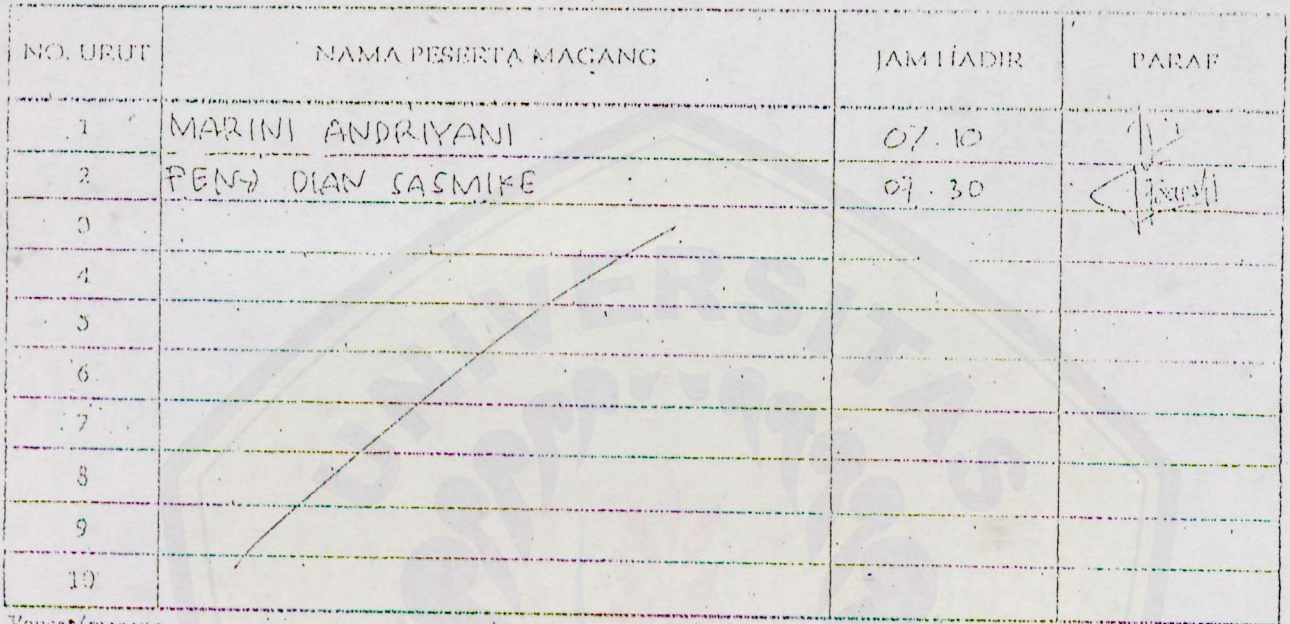 NO. URUT NAMA PESERTA MAGANG JAM HADIR PARAF
1 MARINI ANDRIYANI 07.10
2 PENY DIAN SASMIKE 07.30
3
4
5
6
7
8
9
10
UNIVERSITAS